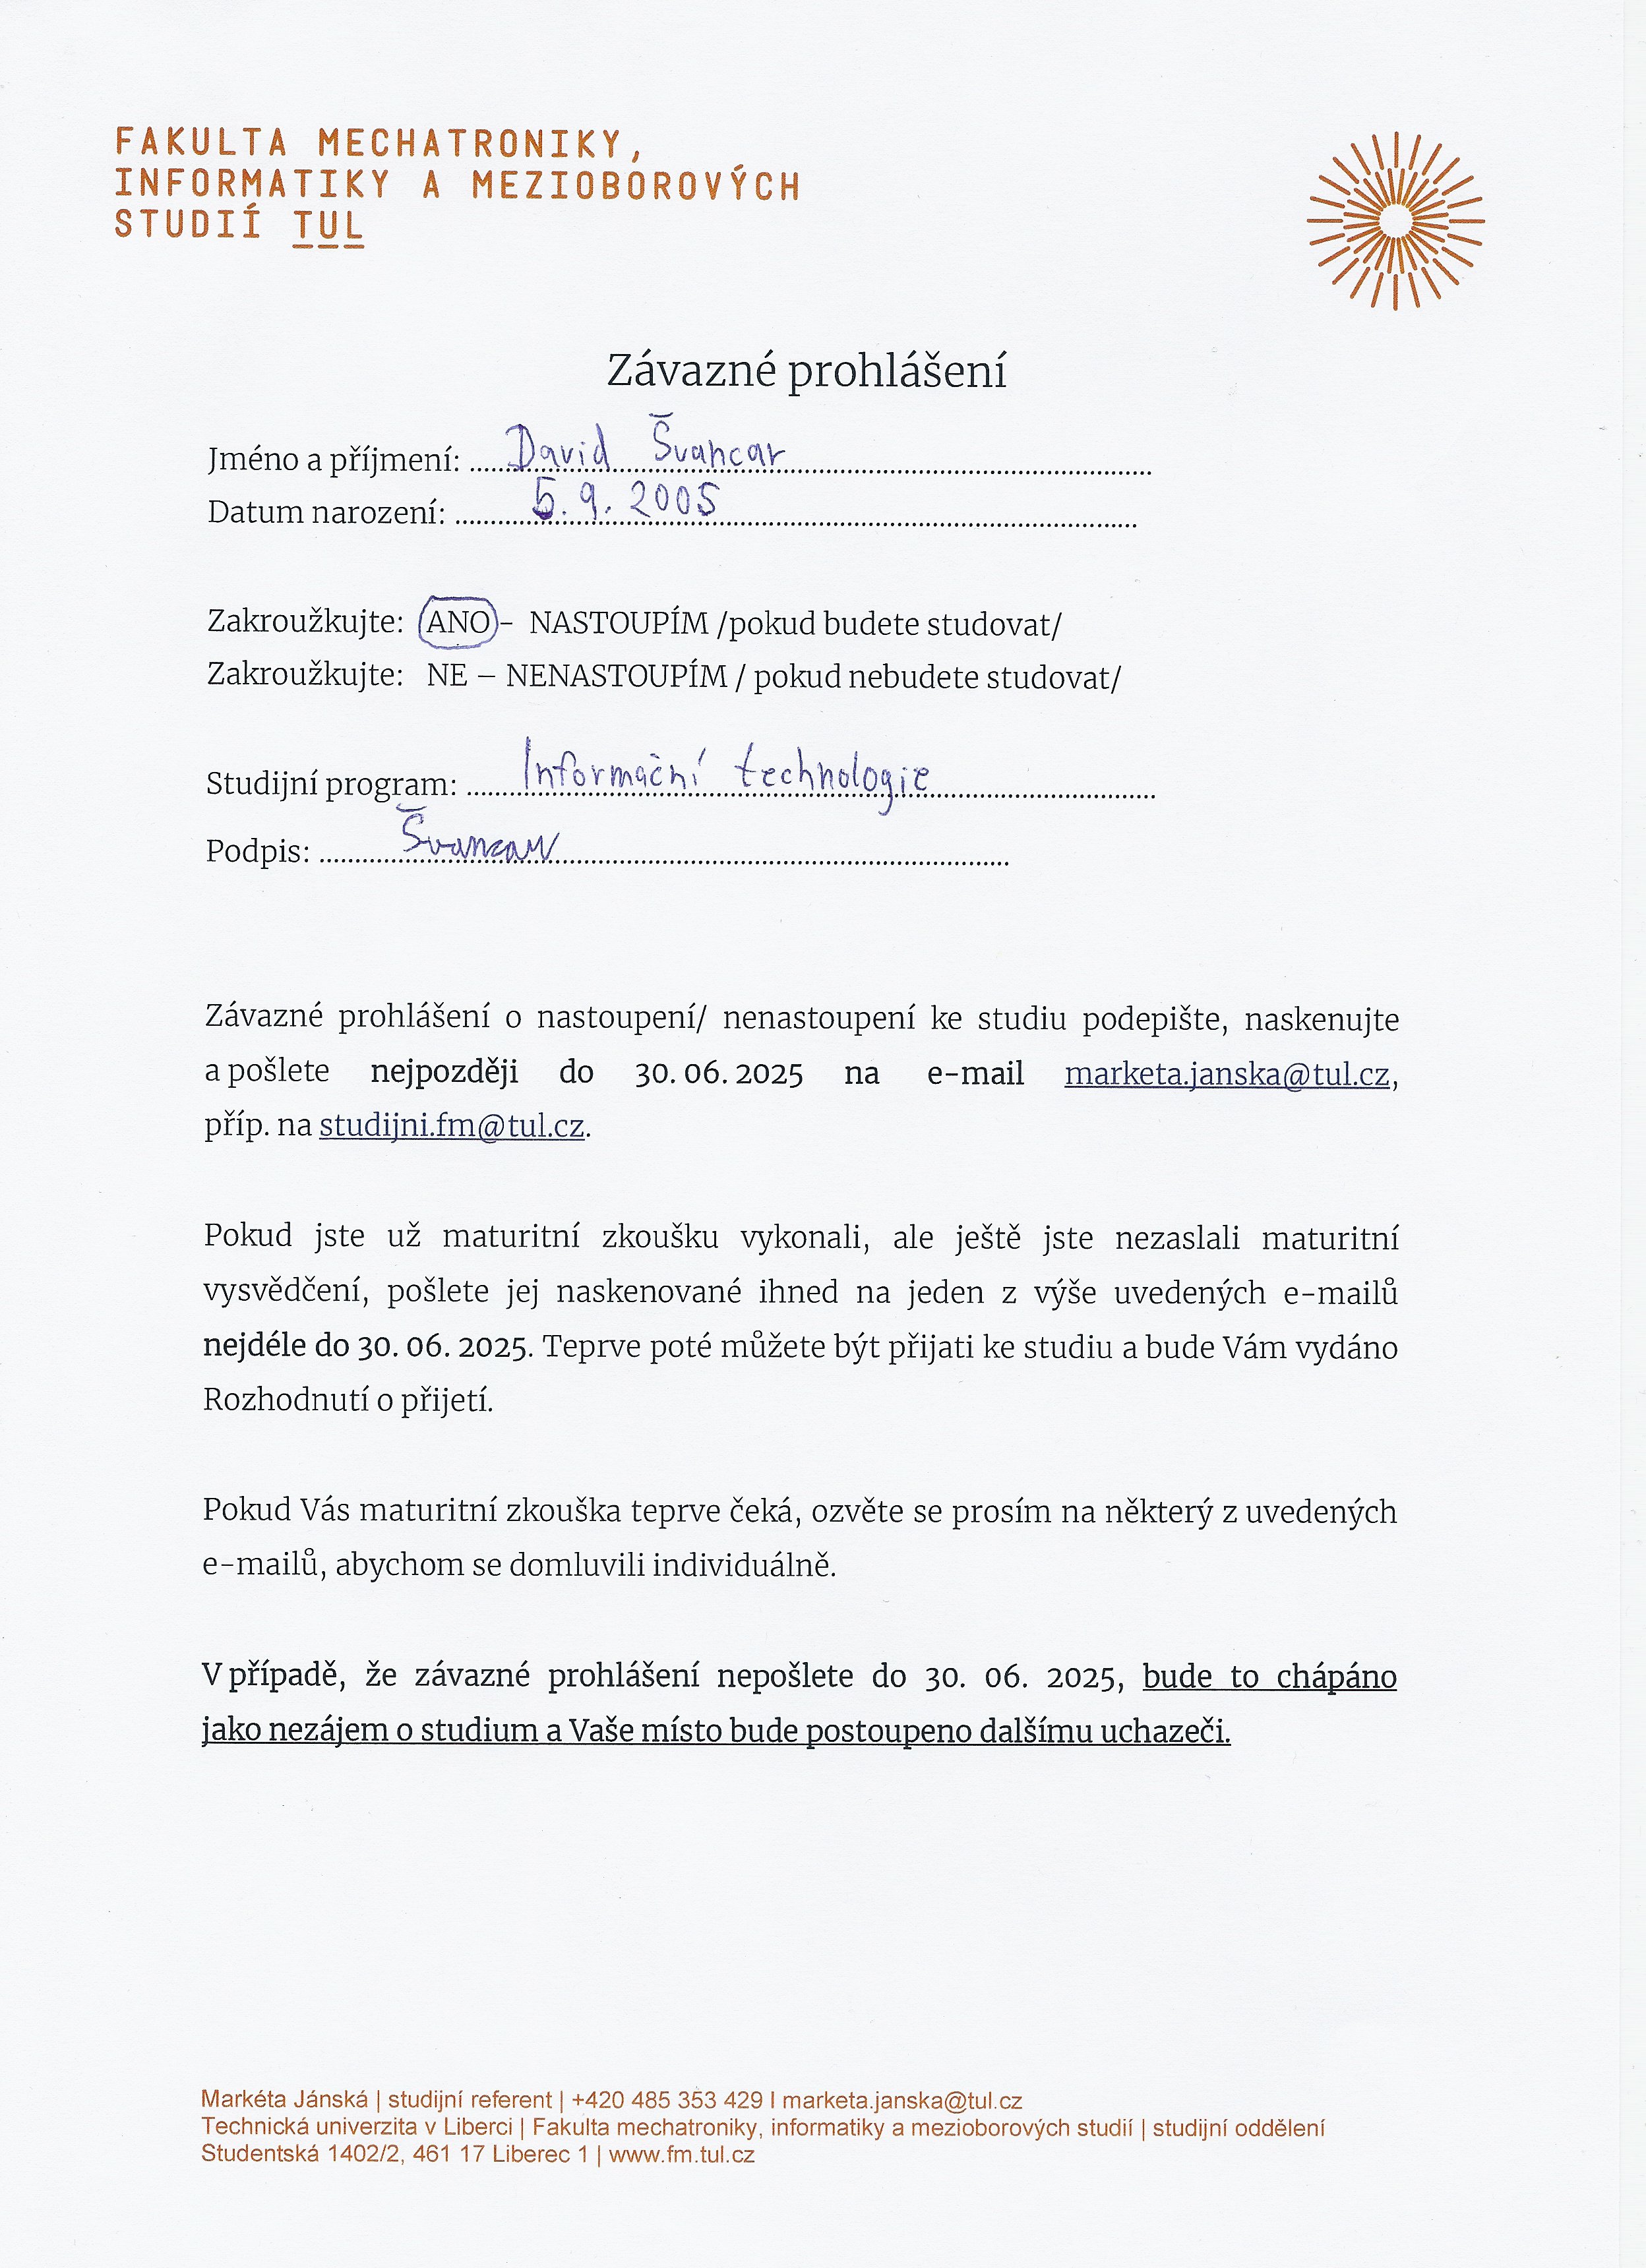 FAKULTA MECHATRONIKY,
INFORMATIKY A MEZIOBOROVÝCH
STUDIÍ TUL
Závazné prohlášení
Jméno a příjmení: David Švancar
Datum narození: 5. 9. 2005
Zakroužkujte: ANO - NASTOUPÍM /pokud budete studovat/
Zakroužkujte: NE – NENASTOUPÍM / pokud nebudete studovat/
Studijní program: Informační technologie
Podpis: Švancar
Závazné prohlášení o nastoupení/ nenastoupení ke studiu podepište, naskenujte
a pošlete nejpozději do 30. 06. 2025 na e-mail marketa.janska@tul.cz,
příp. na studijni.fm@tul.cz.
Pokud jste už maturitní zkoušku vykonali, ale ještě jste nezaslali maturitní
vysvědčení, pošlete jej naskenované ihned na jeden z výše uvedených e-mailů
nejdéle do 30. 06. 2025. Teprve poté můžete být přijati ke studiu a bude Vám vydáno
Rozhodnutí o přijetí.
Pokud Vás maturitní zkouška teprve čeká, ozvěte se prosím na některý z uvedených
e-mailů, abychom se domluvili individuálně.
V případě, že závazné prohlášení nepošlete do 30. 06. 2025, bude to chápáno
jako nezájem o studium a Vaše místo bude postoupeno dalšímu uchazeči.
Markéta Jánská | studijní referent | +420 485 353 429 I marketa.janska@tul.cz
Technická univerzita v Liberci | Fakulta mechatroniky, informatiky a mezioborových studií | studijní oddělení
Studentská 1402/2, 461 17 Liberec 1 | www.fm.tul.cz